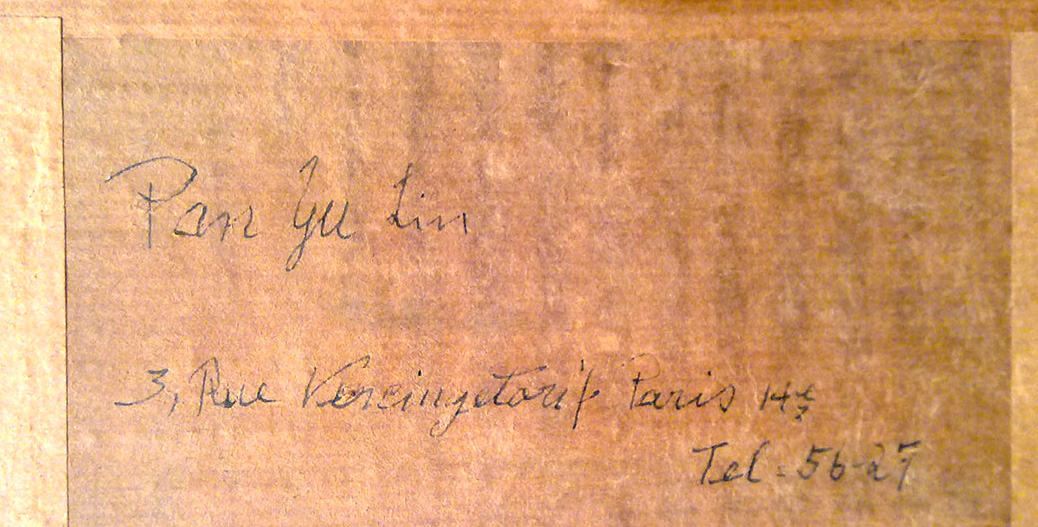 Pan Yu Lin
3, Rue Vercingetorix Paris 14e
Tel. 56-27